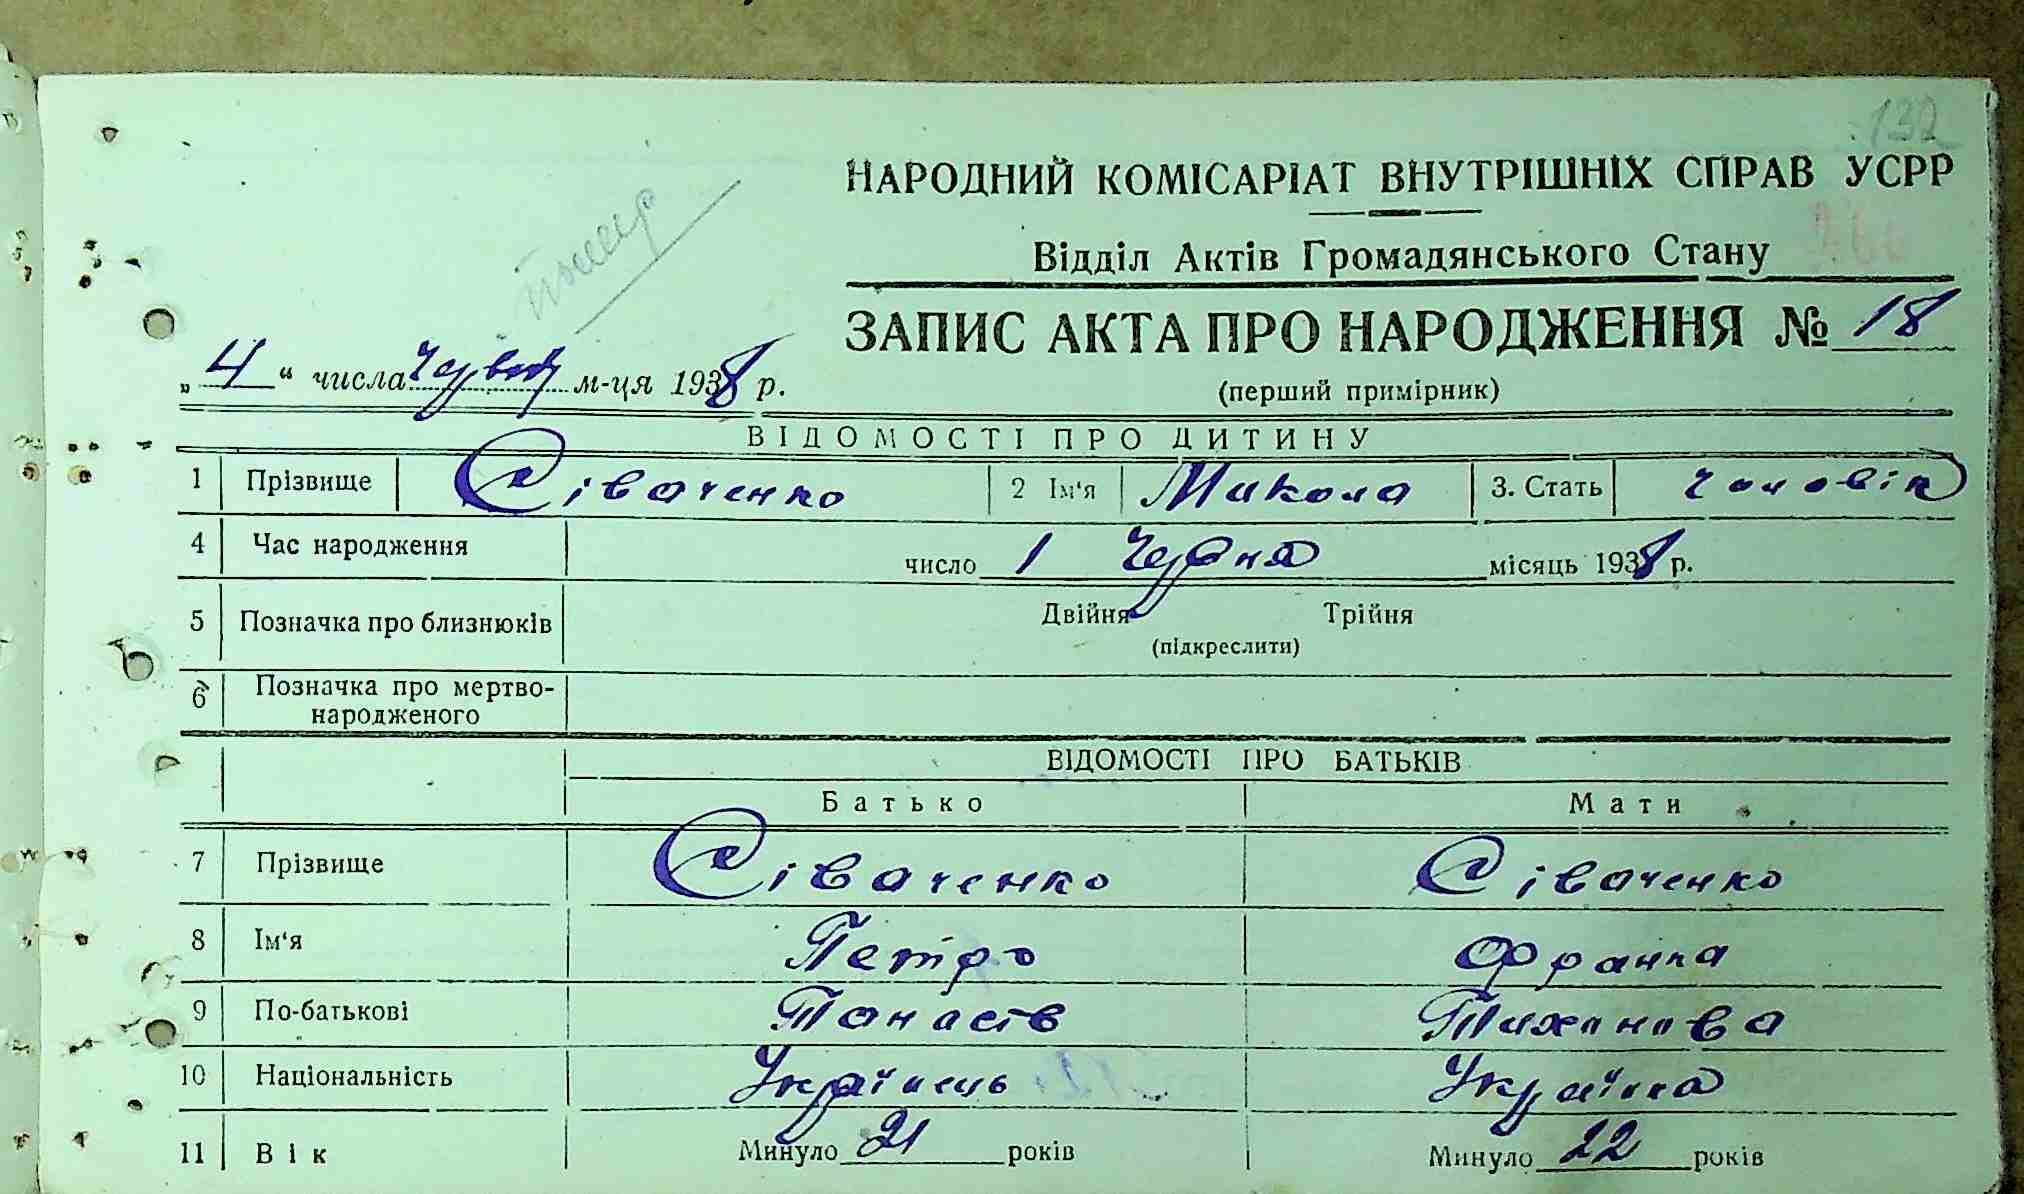 132
НАРОДНИЙ КОМІСАРІАТ ВНУТРІШНІХ СПРАВ УСРР
Відділ Актів Громадянського Стану
ЗАПИС АКТА ПРО НАРОДЖЕННЯ № 18
(перший примірник)
„4“ числа червня м-ця 1938 р.
ВІДОМОСТІ ПРО ДИТИНУ
1 Прізвище Сіваченко 2 Ім'я Микола 3. Стать чоловік
4 Час народження число 1 червня місяць 1938 р.
5 Позначка про близнюків Двійня Трійня
(підкреслити)
6 Позначка про мертво-
народженого
ВІДОМОСТІ ПРО БАТЬКІВ
Батько Мати
7 Прізвище Сіваченко Сіваченко
8 Ім'я Петро Франка
9 По-батькові Панасів Тиханова
10 Національність Українець Українка
11 Вік Минуло 21 років Минуло 22 років